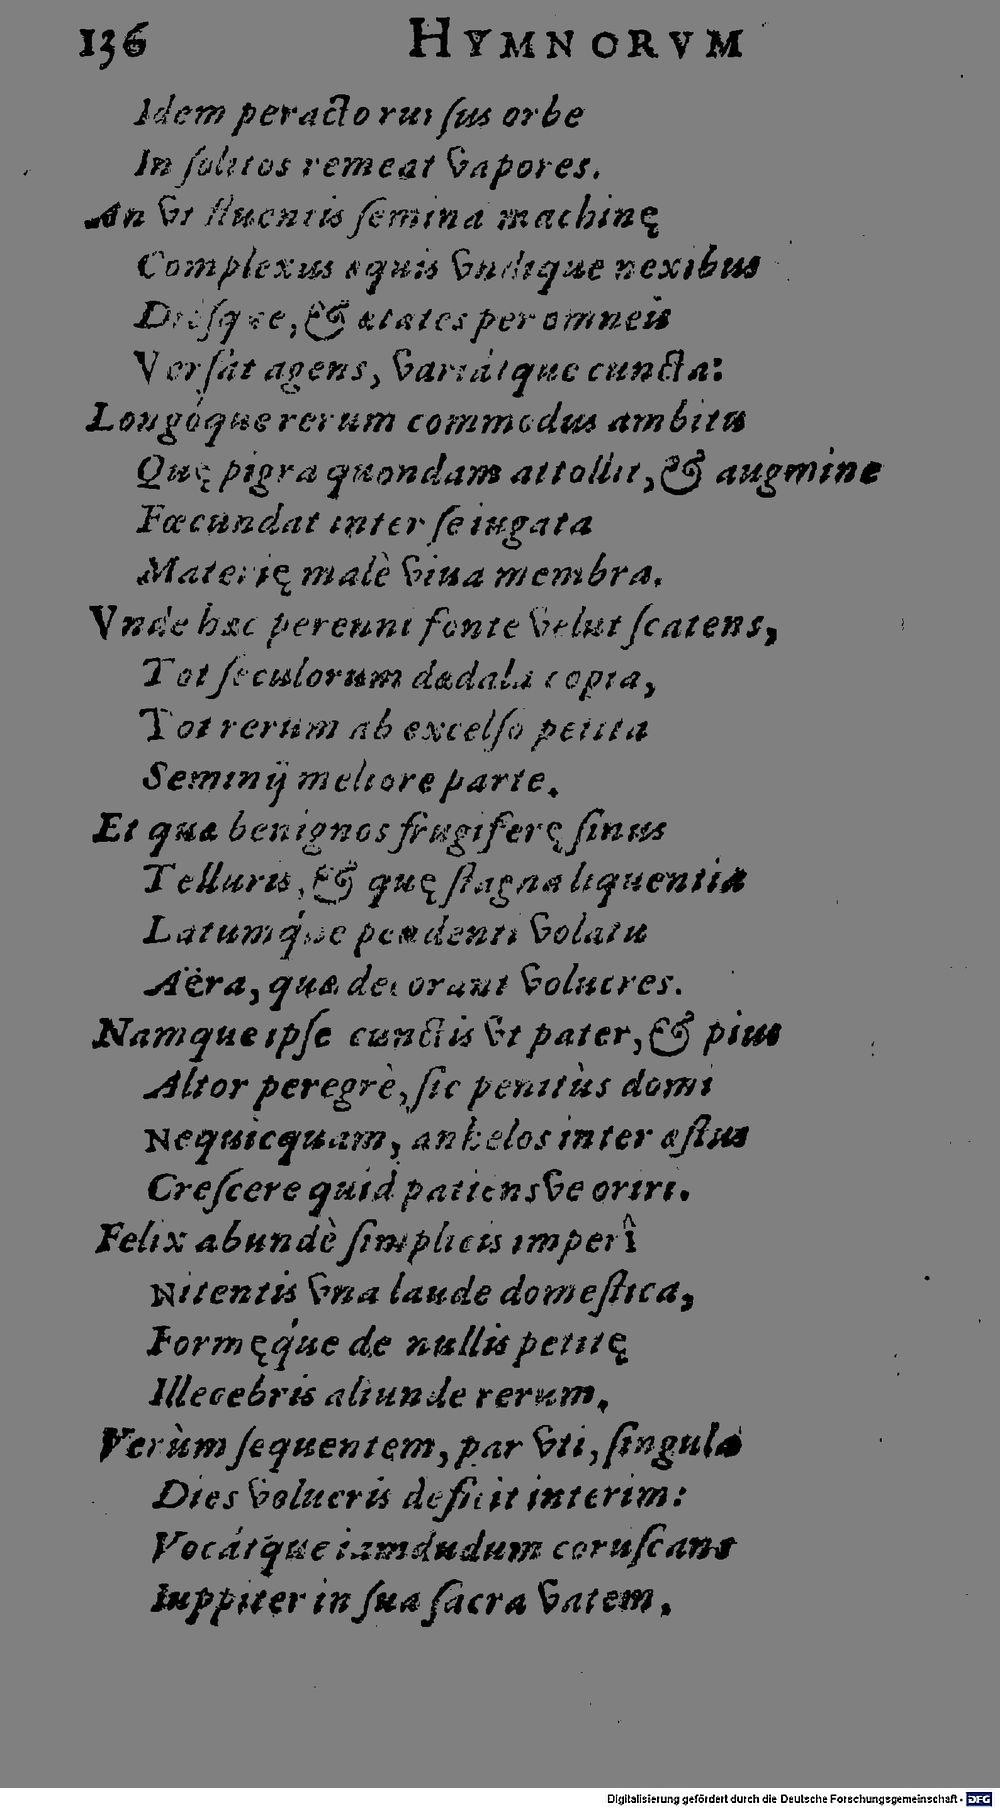 136 HYMNORVM
Idem peracto rursus orbe
In ſolitos remeat vapores.
An vt fluentis ſemina machinę
Complexus æquis vndique nexibus
Diéſque, & ætates per omneis
Verſat agens, variátque cuncta:
Longóque rerum commodus ambitu
Quę pigra quondam attollit, & augmine
Fœcundat inter ſe iugata
Materię malè viua membra.
Vnde hæc perenni fonte velut ſcatens,
Tot ſeculorum dædala copia,
Tot rerum ab excelſo petita
Seminij meliore parte.
Et quæ benignos frugiferę ſinus
Telluris, & quę ſtagna liquentia
Latumq́ue pendenti volatu
Aëra, quæ decorant volucres.
Namque ipſe cunctis vt pater, & pius
Altor peregrè, ſic penitùs domi
Nequicquam, anhelos inter æſtus
Creſcere quid patiensve oriri.
Felix abundè ſimplicis imperî
Nitentis vna laude domeſtica,
Formęq́ue de nullis petitę
Illecebris aliunde rerum.
Verùm ſequentem, par vti, ſingula
Dies volucris deficit interim:
Vocátque iamdudum coruſcans
Iuppiter in ſua ſacra vatem.
Digitalisierung gefördert durch die Deutsche Forschungsgemeinschaft - DFG